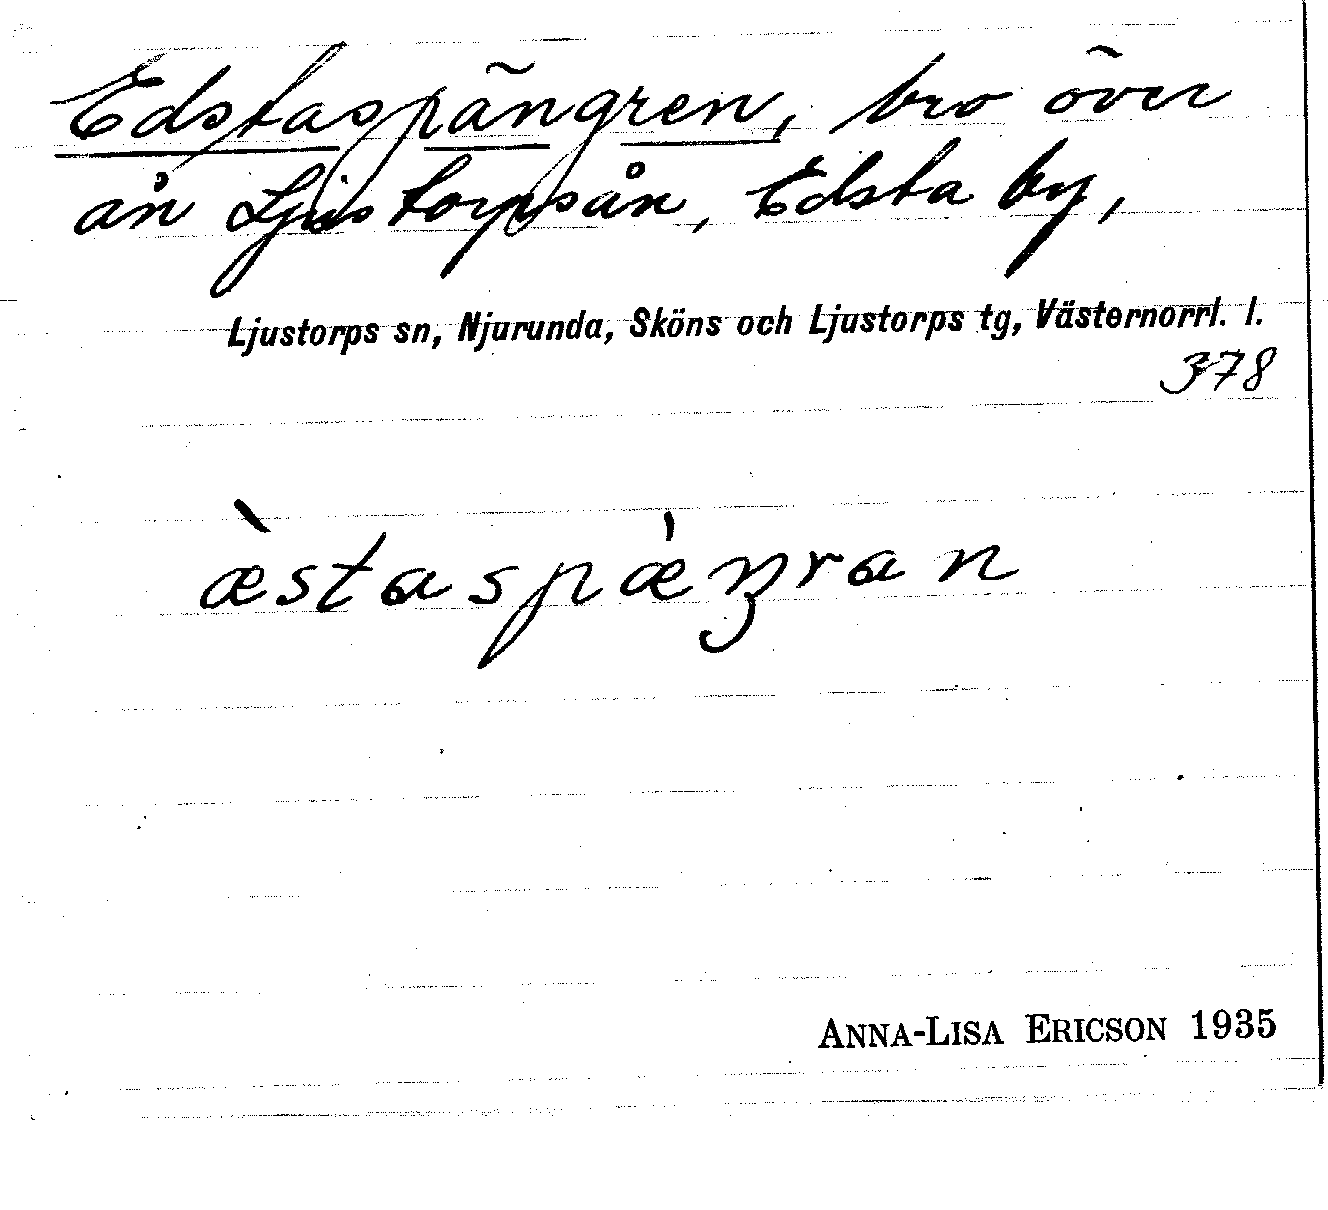 Edstaspängren, bro över
ån Ljustorpsån, Edsta by,
Ljustorps sn, Njurunda, Sköns och Ljustorps tg, Västernorrl. l.
378
æ̀staspæ̀ŋran
ANNA-LISA ERICSON 1935